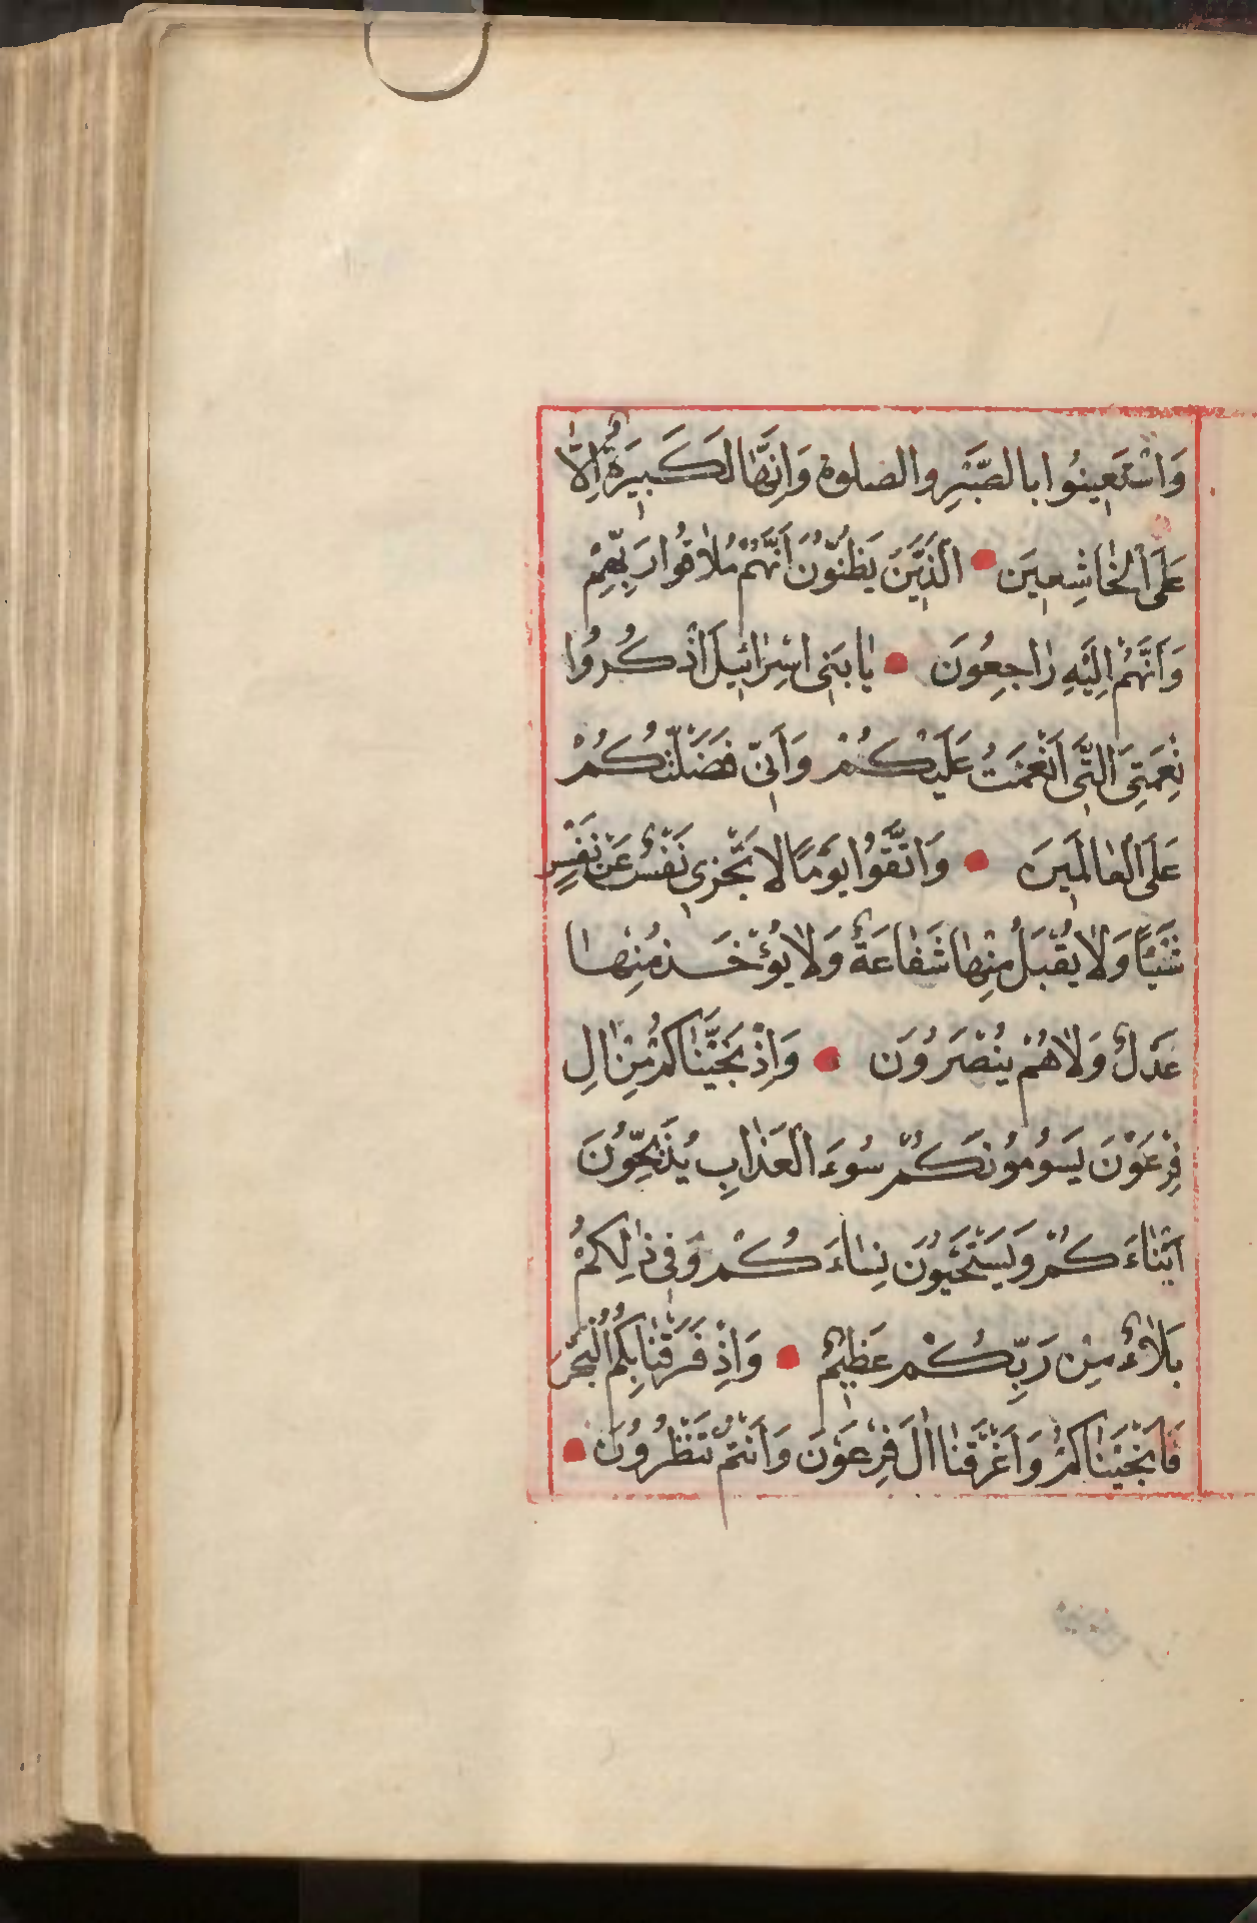 وَاسْتَعِينُوا بالصَّبْرِ والصلوة وَاِنَّهٰا لَكَبِيرَةٌ اِلّٰا
عَلَى الْخٰاشِعِينَ الَّذِينَ يَظُنُّونَ اَنَّهُمْ مُلٰاقُوا رَبِّهِمْ
وَاَنَّهُمْ اِلَيْهِ رٰاجِعُونَ يٰا بَنِى اِسْرٰائِيلَ اذْكُرُوا
نِعْمَتِىَ الَّتِى اَنْعَمْتُ عَلَيْكُمْ وَاَنِّى فَضَّلْتُكُمْ
عَلَى الْعٰالَمِينَ وَاتَّقُوا يَوْمًا لٰا تَجْزِى نَفْسٌ عَنْ نَفْسٍ
شَيْئًا وَلٰا يُقْبَلُ مِنْهٰا شَفٰاعَةٌ وَلٰا يُؤْخَذ مِنْهٰا
عَدْلٌ وَلٰا هُمْ يُنْصَرُونَ وَاِذْ نَجَّيْنٰاكُمْ مِنْ اٰلِ
فِرْعَوْنَ يَسُومُونَكُمْ سُوءَ الْعَذٰابِ يُذَبِّحُونَ
اَبْنٰاءَكُمْ وَيَسْتَحْيُونَ نِسٰاءَكُمْ وَفِى ذٰلِكُمْ
بَلٰاءٌ مِنْ رَبِّكُمْ عَظِيمٌ وَاِذْ فَرَقْنٰا بِكُمُ الْبَحْرَ
فَاَنْجَيْنٰاكُمْ وَاَغْرَقْنٰا اٰلَ فِرْعَوْنَ وَاَنْتُمْ تَنْظُرُونَ